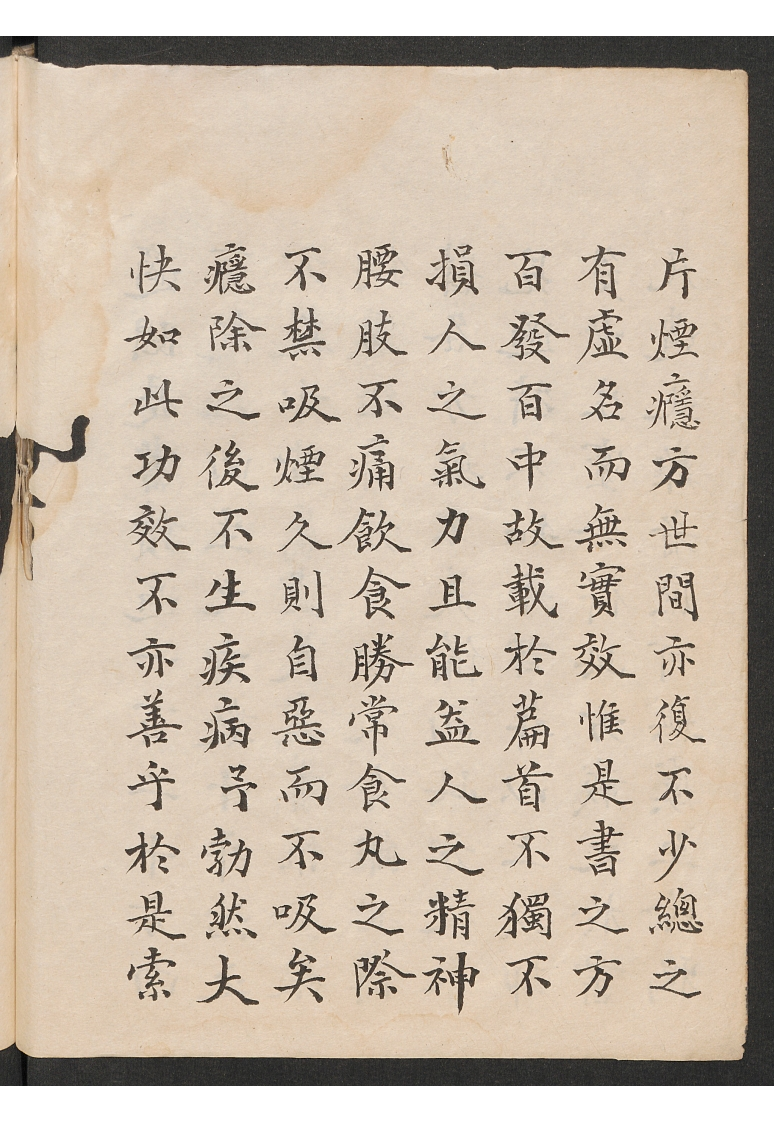 片煙癮方世間亦復不少總之
有虛名而無實效惟是書之方
百發百中故載於篇首不獨不
損人之氣力且能益人之精神
腰肢不痛飲食勝常食丸之際
不禁吸煙久則自惡而不吸矣
癮除之後不生疾病予勃然大
快如此功效不亦善乎於是索